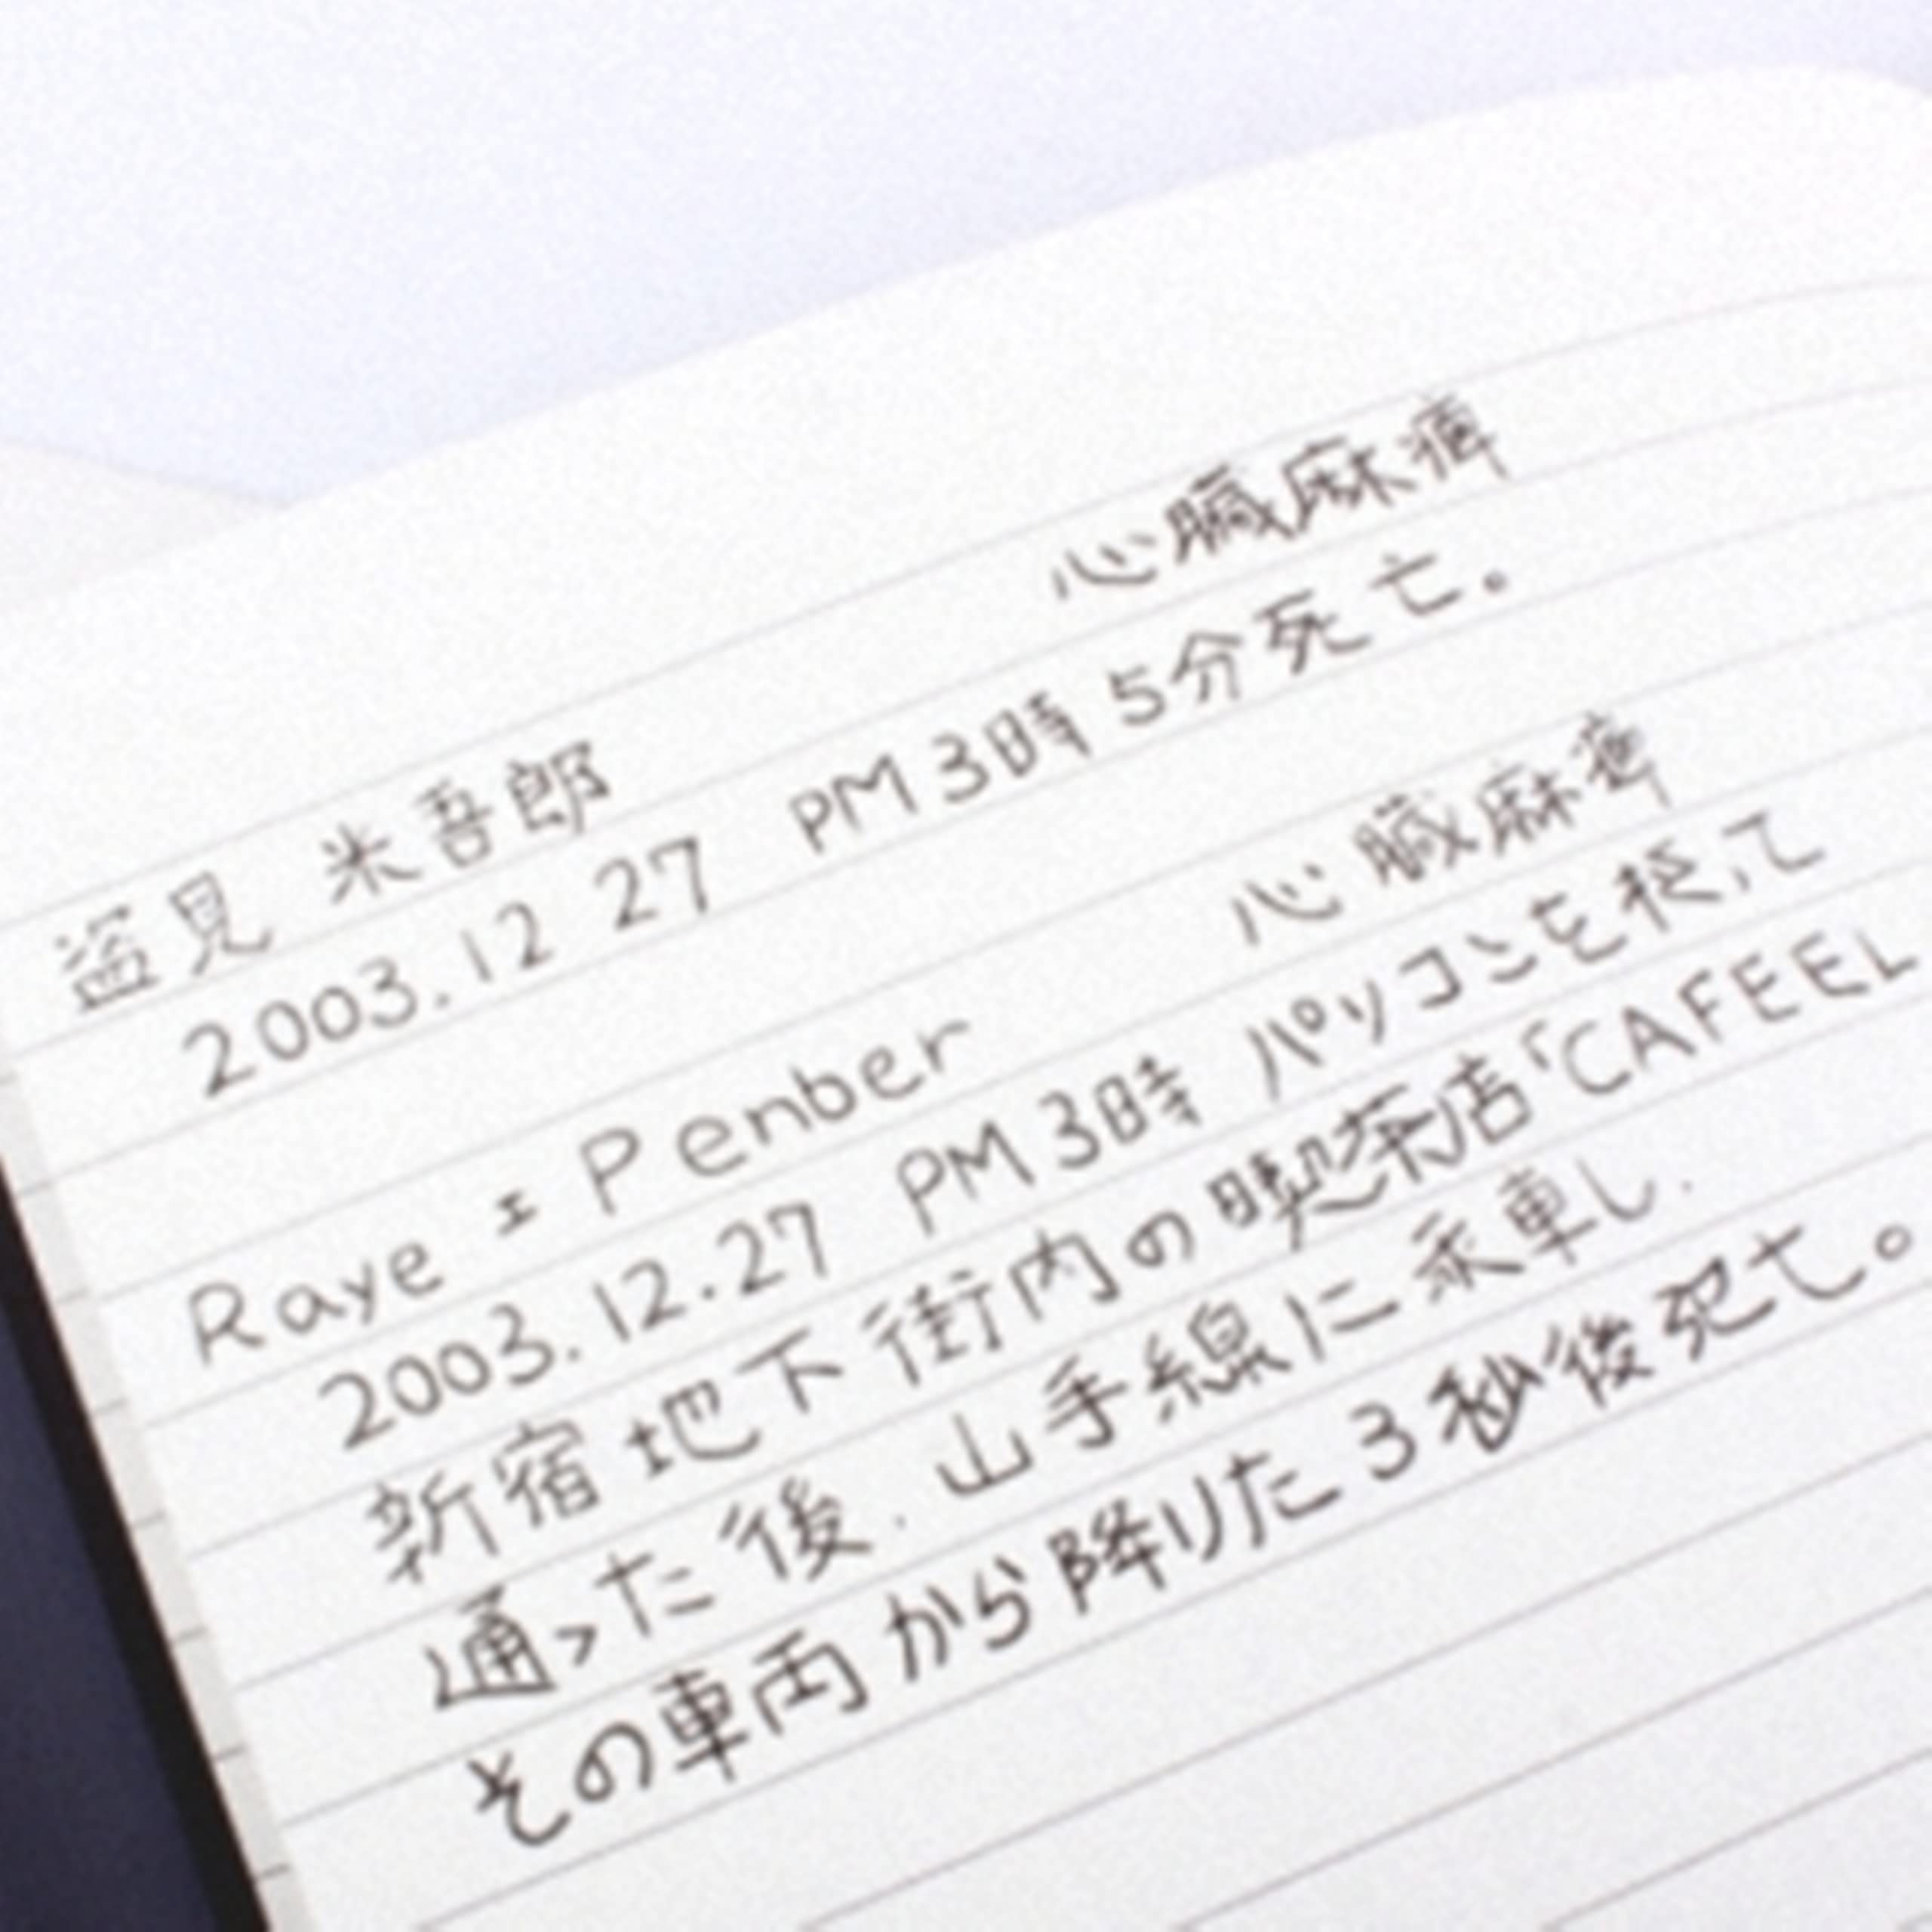 盗見 米吾郎 心臓麻痺
2003.12 27 PM3時5分死亡.
Raye = Penber 心臓麻痺
2003.12.27 PM3時 パソコンを使って
新宿地下街内の喫茶店「CAFEEL
通った後. 山手線に乗車し.
その車両から降りた3秒後死亡。